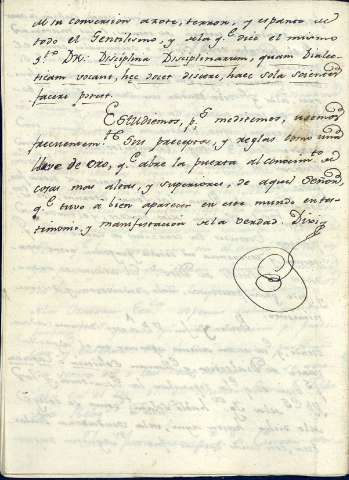 de su conversion azote, terror, y espanto de
todo el Gentilismo, y de la q.e dice el mismo
S.to Dr.: Disciplina Disciplinarum, quam Dialec-
ticam vocant, hęc docet discere, haec sola scientes
facere potest.
Estudiemos, p.s meditemos, usemos
frecuentem.te sus preceptos, y reglas como una
llave de oro, q.e abre la puerta al conocim.to de
cosas mas altas, y superiores, de aquel Señor,
q.e tuvo á bien aparecer en este mundo en tes-
timonio, y manifestacion de la verdad. Dixi